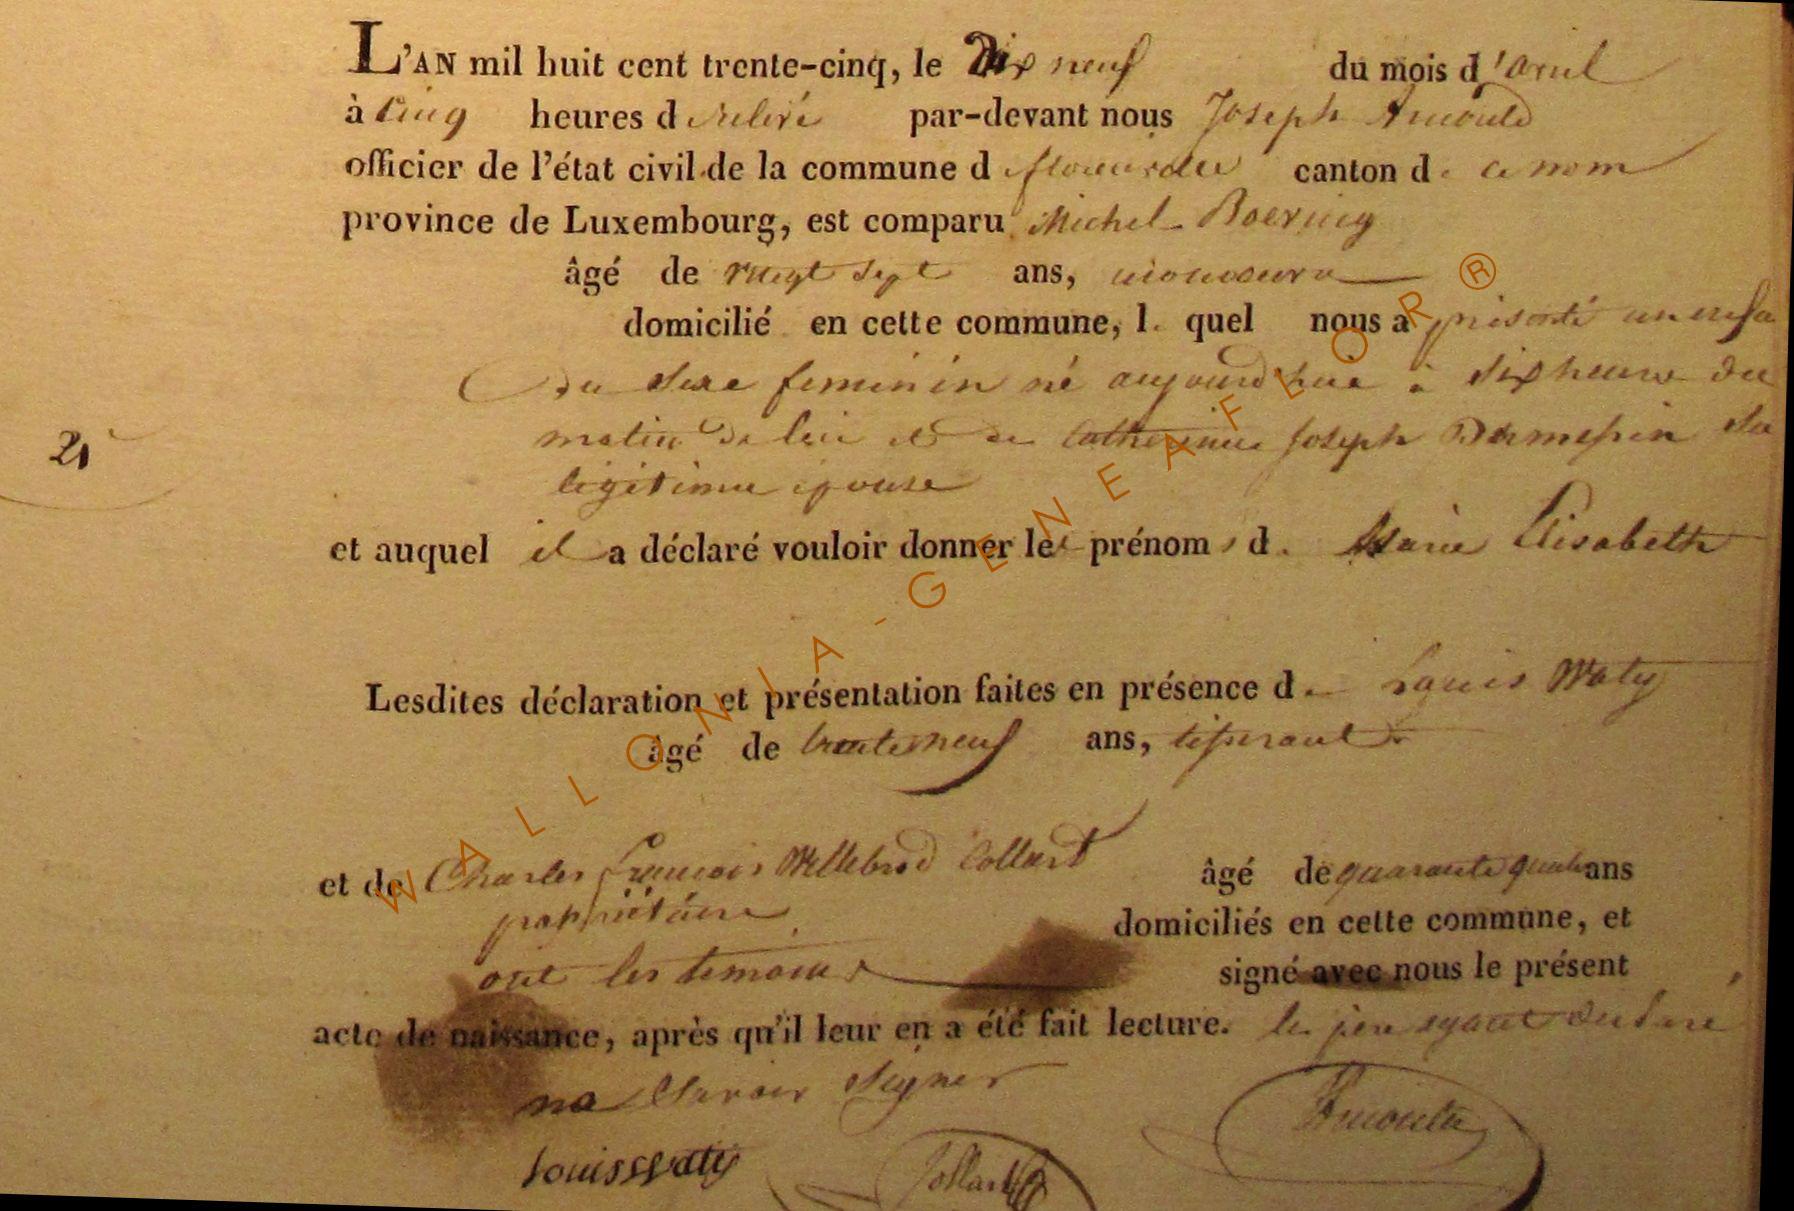 L'AN mil huit cent trente-cinq, le Dix neuf du mois d'avril
à cinq heures d relevé par-devant nous Joseph Arnould
officier de l'état civil de la commune d canton d ce nom
province de Luxembourg, est comparu Michel
âgé de vingt sept ans, manoeuvre
domicilié en cette commune, l quel nous a présenté un enfa
du sexe feminin né aujourd'hui à six heures du
matin de lui et de Catherine Joseph sa
légitime épouse
21
et auquel il a déclaré vouloir donner les prénoms d Marie Elisabeth
Lesdites déclaration et présentation faites en présence de Louis Waty
âgé de trente neuf ans, tisserant
et de Charles François Willebrod Collard âgé de quarante quatre ans
propriétaire domiciliés en cette commune, et
ont les temoins signé avec nous le présent
acte de naissance, après qu'il leur en a été fait lecture. le père ayant declaré
ne savoir signer
Arnould
louis Waty
Collard
WALLONIA-GENEAFLOR®